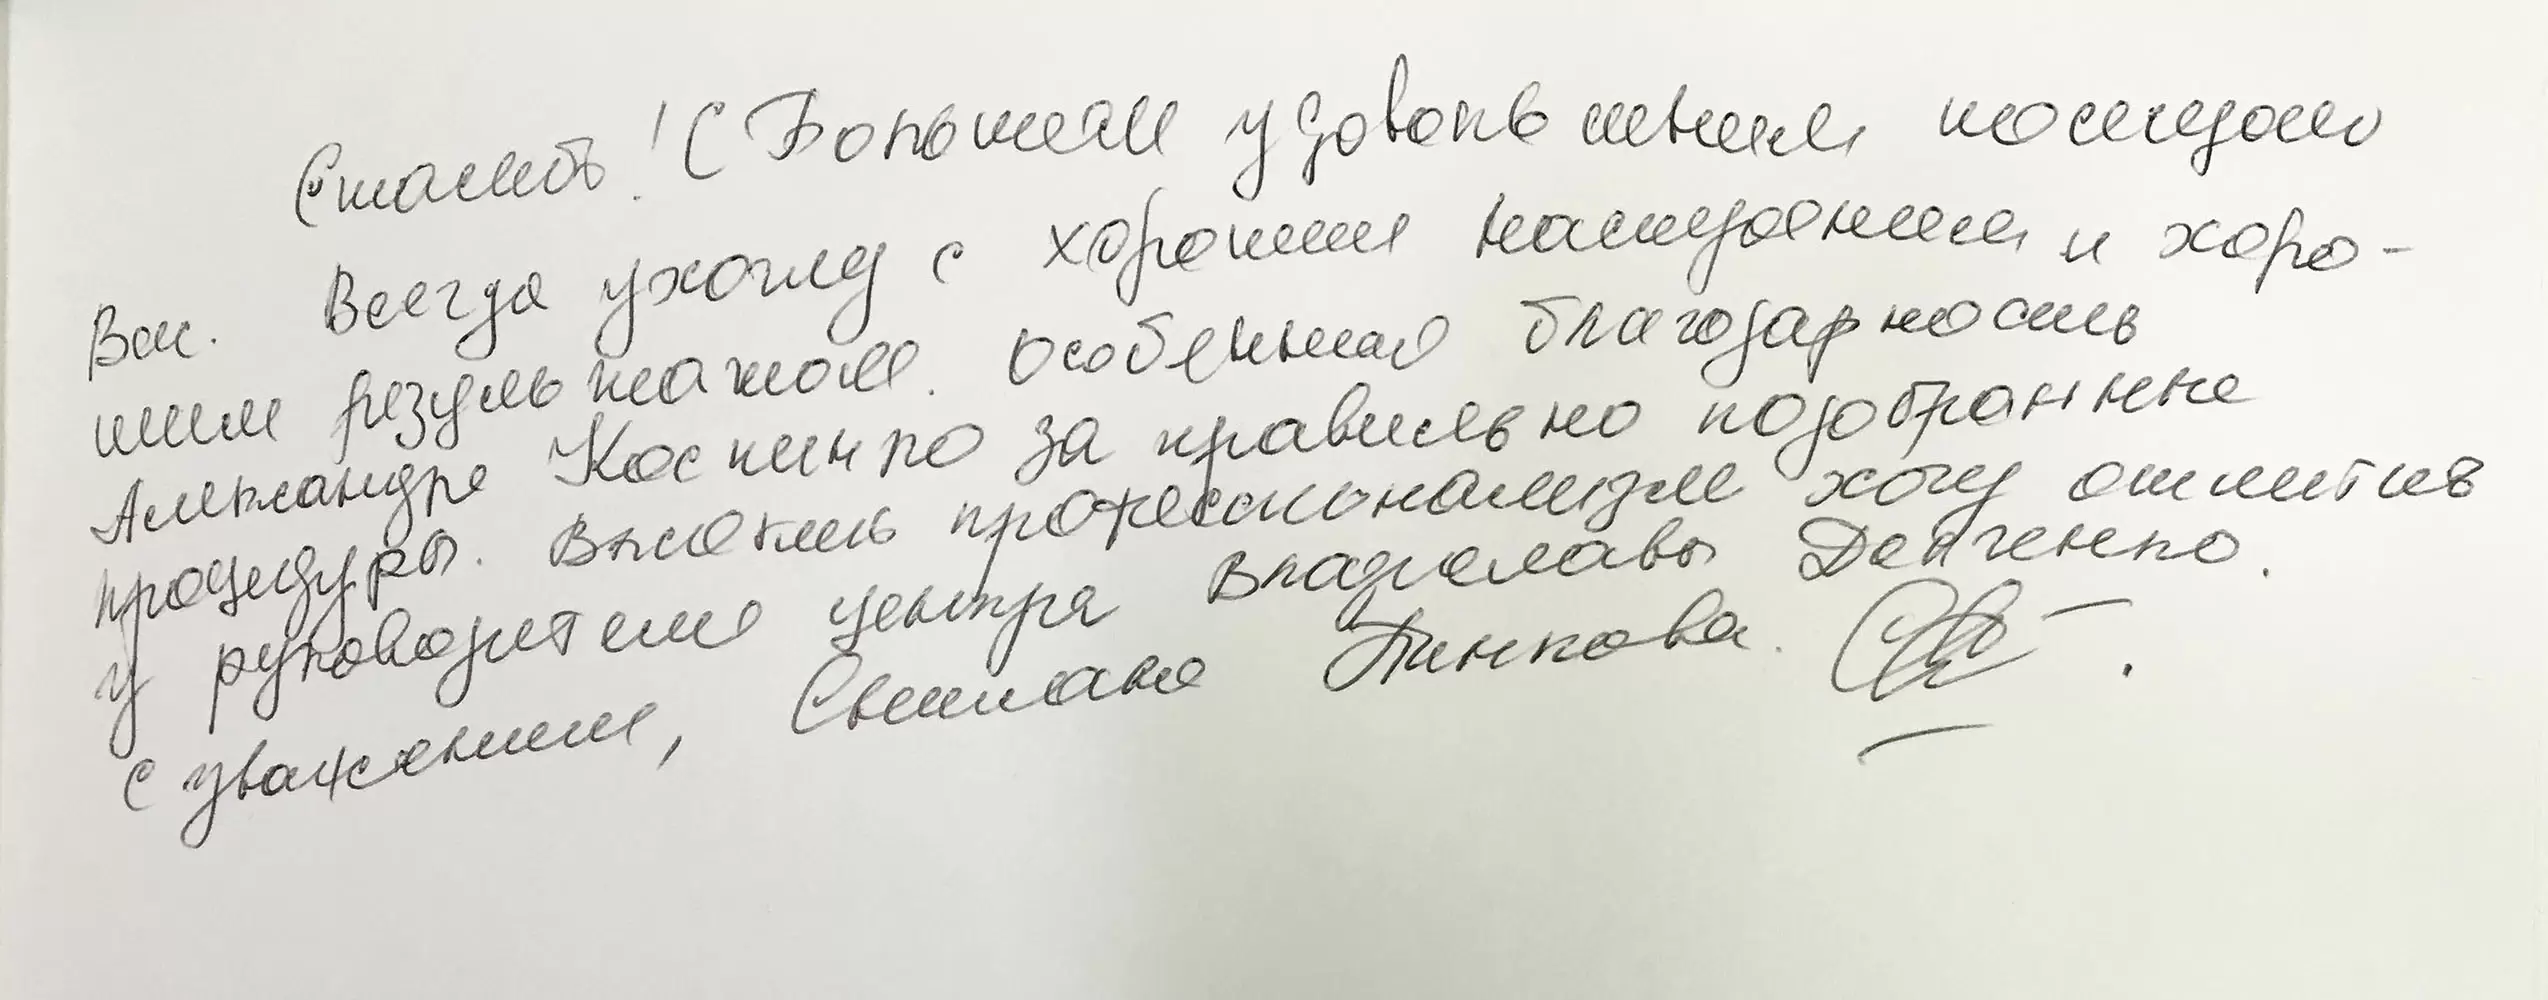 Спасибо! С Большим удовольствием посещаю
Вас. Всегда ухожу с хорошим настроением и хоро-
шим результатом. Особенная благодарность
Александре за правильно подобранные
процедуры. Высокий профессионализм хочу отметить
у руководителя центра Владиславы Демченко.
С уважением, Светлана Пинкова.